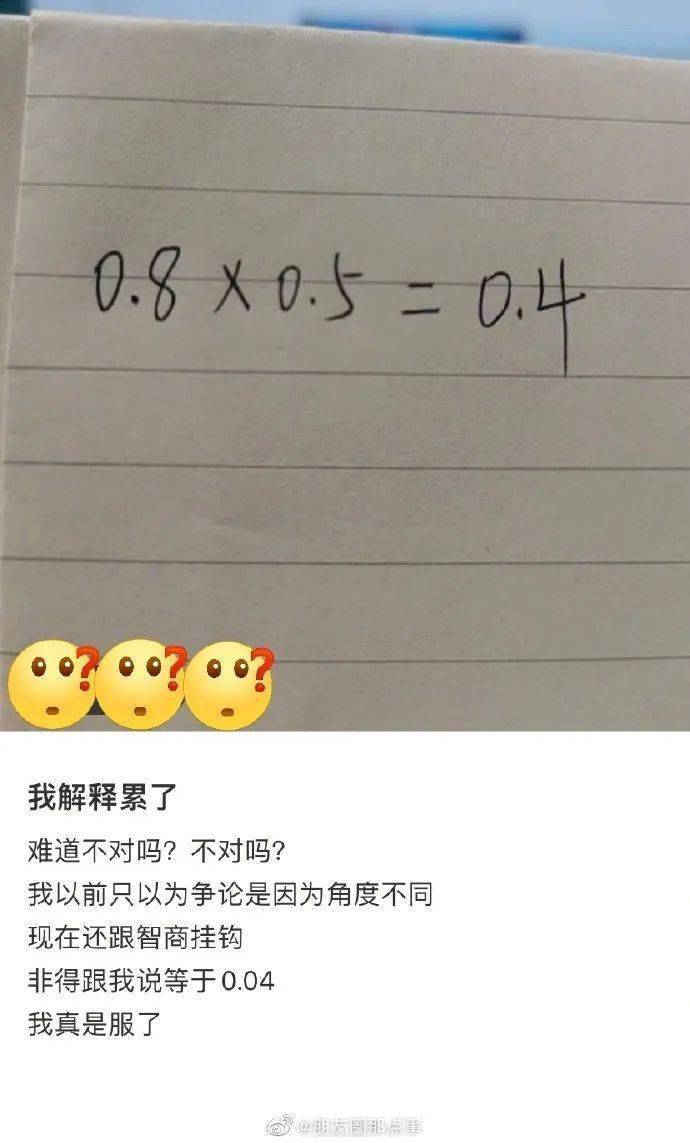 0.8×0.5=0.4
我解释累了
难道不对吗？不对吗？
我以前只以为争论是因为角度不同
现在还跟智商挂钩
非得跟我说等于0.04
我真是服了
@朋友圈那点事